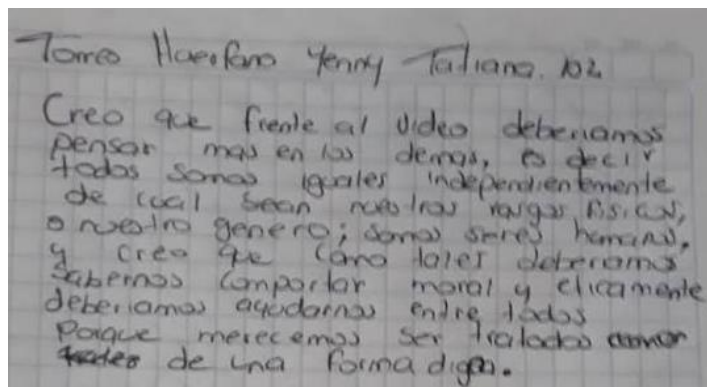 Yenny Tatiana. 102
Creo que frente al video deberiamos
pensar mas en los demas, es decir
todos somos iguales independientemente
de cual sean nuestros rasgos fisicos,
o nuestro genero; somos seres humanos,
y creo que como tales deberiamos
sabernos comportar moral y eticamente
deberiamos ayudarnos entre todos
Porque merecemos ser tratados
de una forma digna.